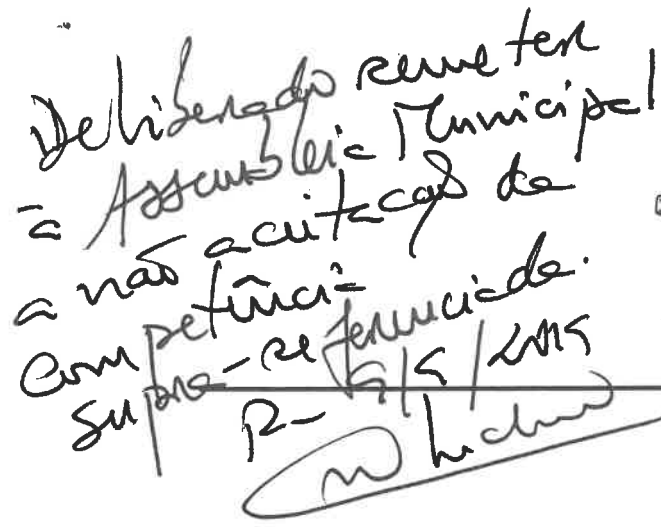 Deliberado remeter
à Assembleia Municipal
a não aceitação da
competência
supra-referenciada.
P-